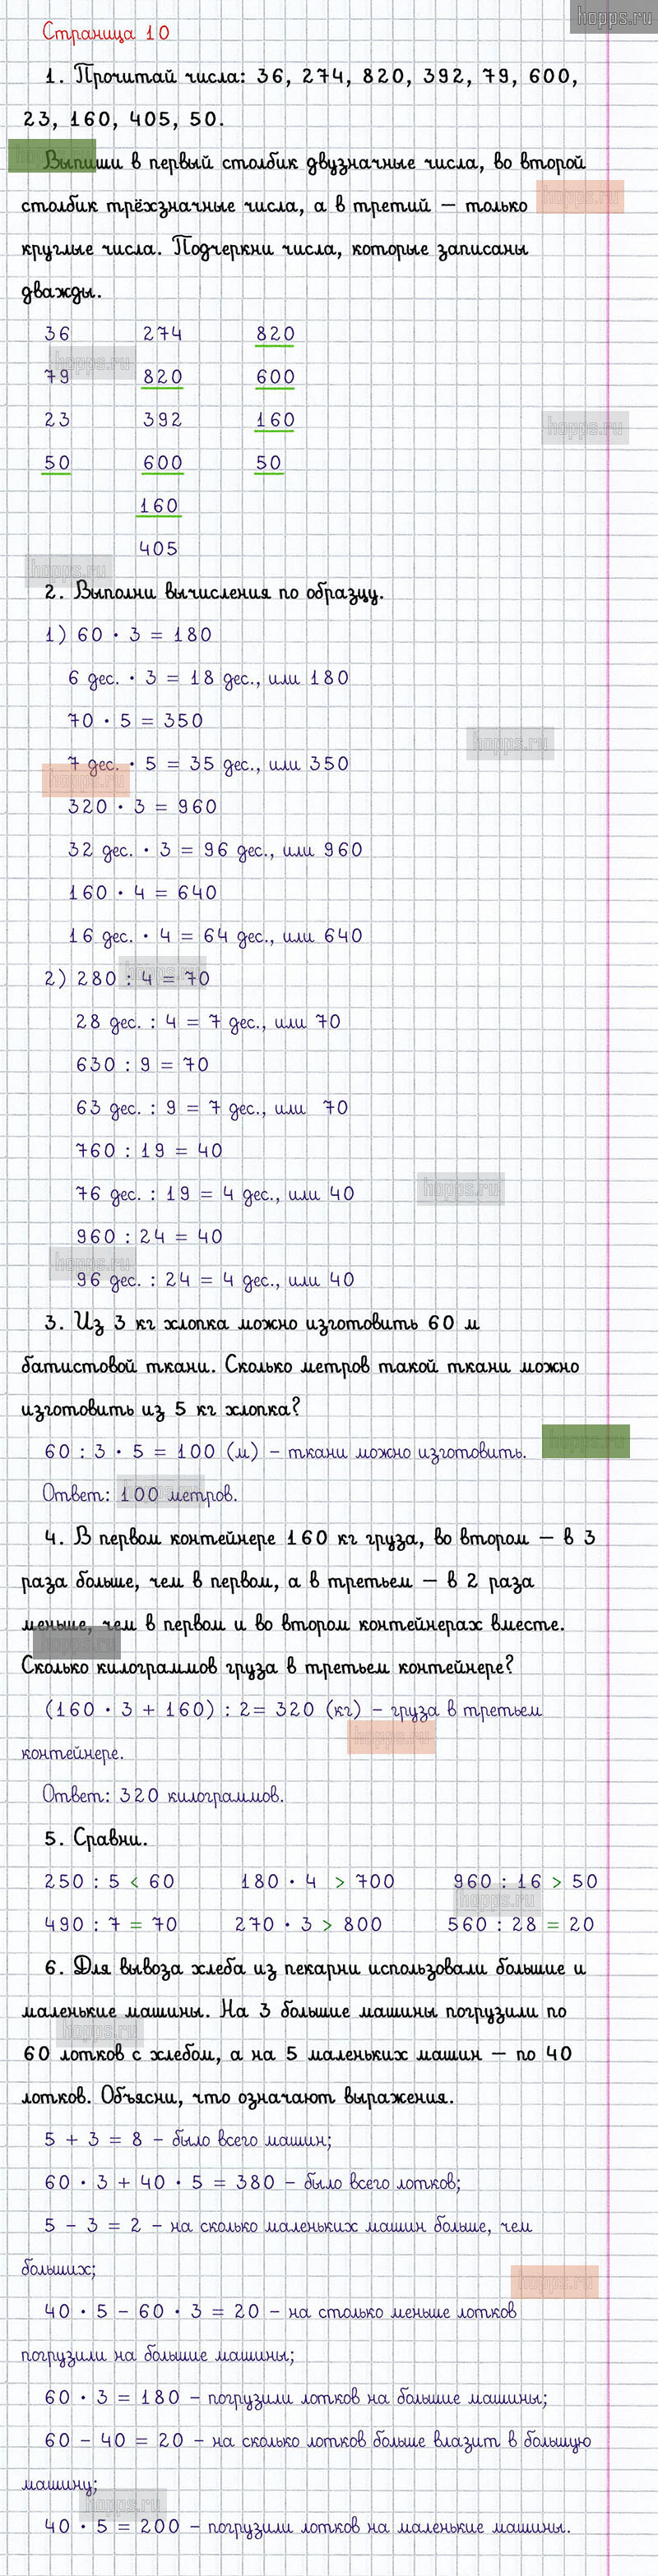 hopps.ru
Страница 10
1. Прочитай числа: 36, 274, 820, 392, 79, 600,
23, 160, 405, 50.
Выпиши в первый столбик двузначные числа, во второй
столбик трёхзначные числа, а в третий – только
круглые числа. Подчеркни числа, которые записаны
дважды.
36 274 820
79 820 600
23 392 160
50 600 50
160
405
2. Выполни вычисления по образцу.
1) 60 · 3 = 180
6 дес. · 3 = 18 дес., или 180
70 · 5 = 350
7 дес. · 5 = 35 дес., или 350
320 · 3 = 960
32 дес. · 3 = 96 дес., или 960
160 · 4 = 640
16 дес. · 4 = 64 дес., или 640
2) 280 : 4 = 70
28 дес. : 4 = 7 дес., или 70
630 : 9 = 70
63 дес. : 9 = 7 дес., или 70
760 : 19 = 40
76 дес. : 19 = 4 дес., или 40
960 : 24 = 40
96 дес. : 24 = 4 дес., или 40
3. Из 3 кг хлопка можно изготовить 60 м
батистовой ткани. Сколько метров такой ткани можно
изготовить из 5 кг хлопка?
60 : 3 · 5 = 100 (м) – ткани можно изготовить.
Ответ: 100 метров.
4. В первом контейнере 160 кг груза, во втором – в 3
раза больше, чем в первом, а в третьем – в 2 раза
меньше, чем в первом и во втором контейнерах вместе.
Сколько килограммов груза в третьем контейнере?
(160 · 3 + 160) : 2= 320 (кг) – груза в третьем
контейнере.
Ответ: 320 килограммов.
5. Сравни.
250 : 5 < 60 180 · 4 > 700 960 : 16 > 50
490 : 7 = 70 270 · 3 > 800 560 : 28 = 20
6. Для вывоза хлеба из пекарни использовали большие и
маленькие машины. На 3 большие машины погрузили по
60 лотков с хлебом, а на 5 маленьких машин – по 40
лотков. Объясни, что означают выражения.
5 + 3 = 8 – было всего машин;
60 · 3 + 40 · 5 = 380 – было всего лотков;
5 – 3 = 2 – на сколько маленьких машин больше, чем
больших;
40 · 5 – 60 · 3 = 20 – на столько меньше лотков
погрузили на большие машины;
60 · 3 = 180 – погрузили лотков на большие машины;
60 – 40 = 20 – на сколько лотков больше влазит в большую
машину;
40 · 5 = 200 – погрузили лотков на маленькие машины.